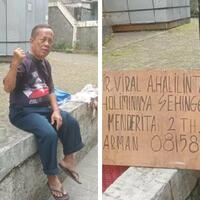 R. VIRAL A.HALILINT
HOLIMINNYA SEHINGG
MENDERITA 2 TH
ARMAN 08158